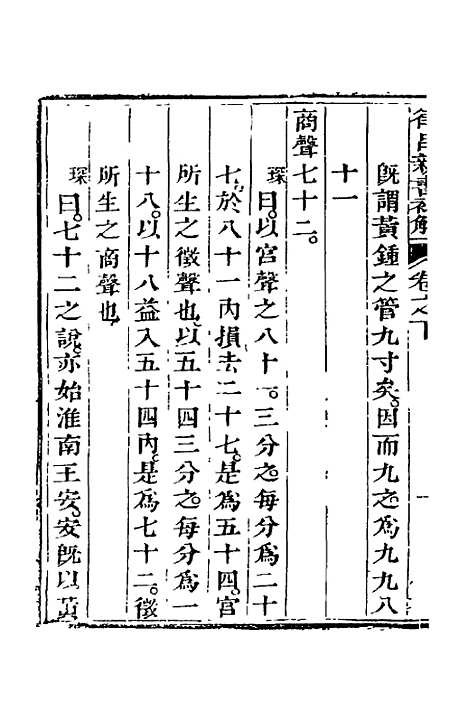 律呂新書補解 卷之下
既謂黃鍾之管九寸矣因而九之爲九九八
十一
商聲七十二。
琛曰。以宮聲之八十一。三分之。每分爲二十
七。於八十一內損去二十七。是爲五十四。宮
所生之徵聲也。以五十四三分之。每分爲一
十八。以十八益入五十四內。是爲七十二。徵
所生之商聲也
琛曰。七十二之說。亦始淮南王安。安既以黃